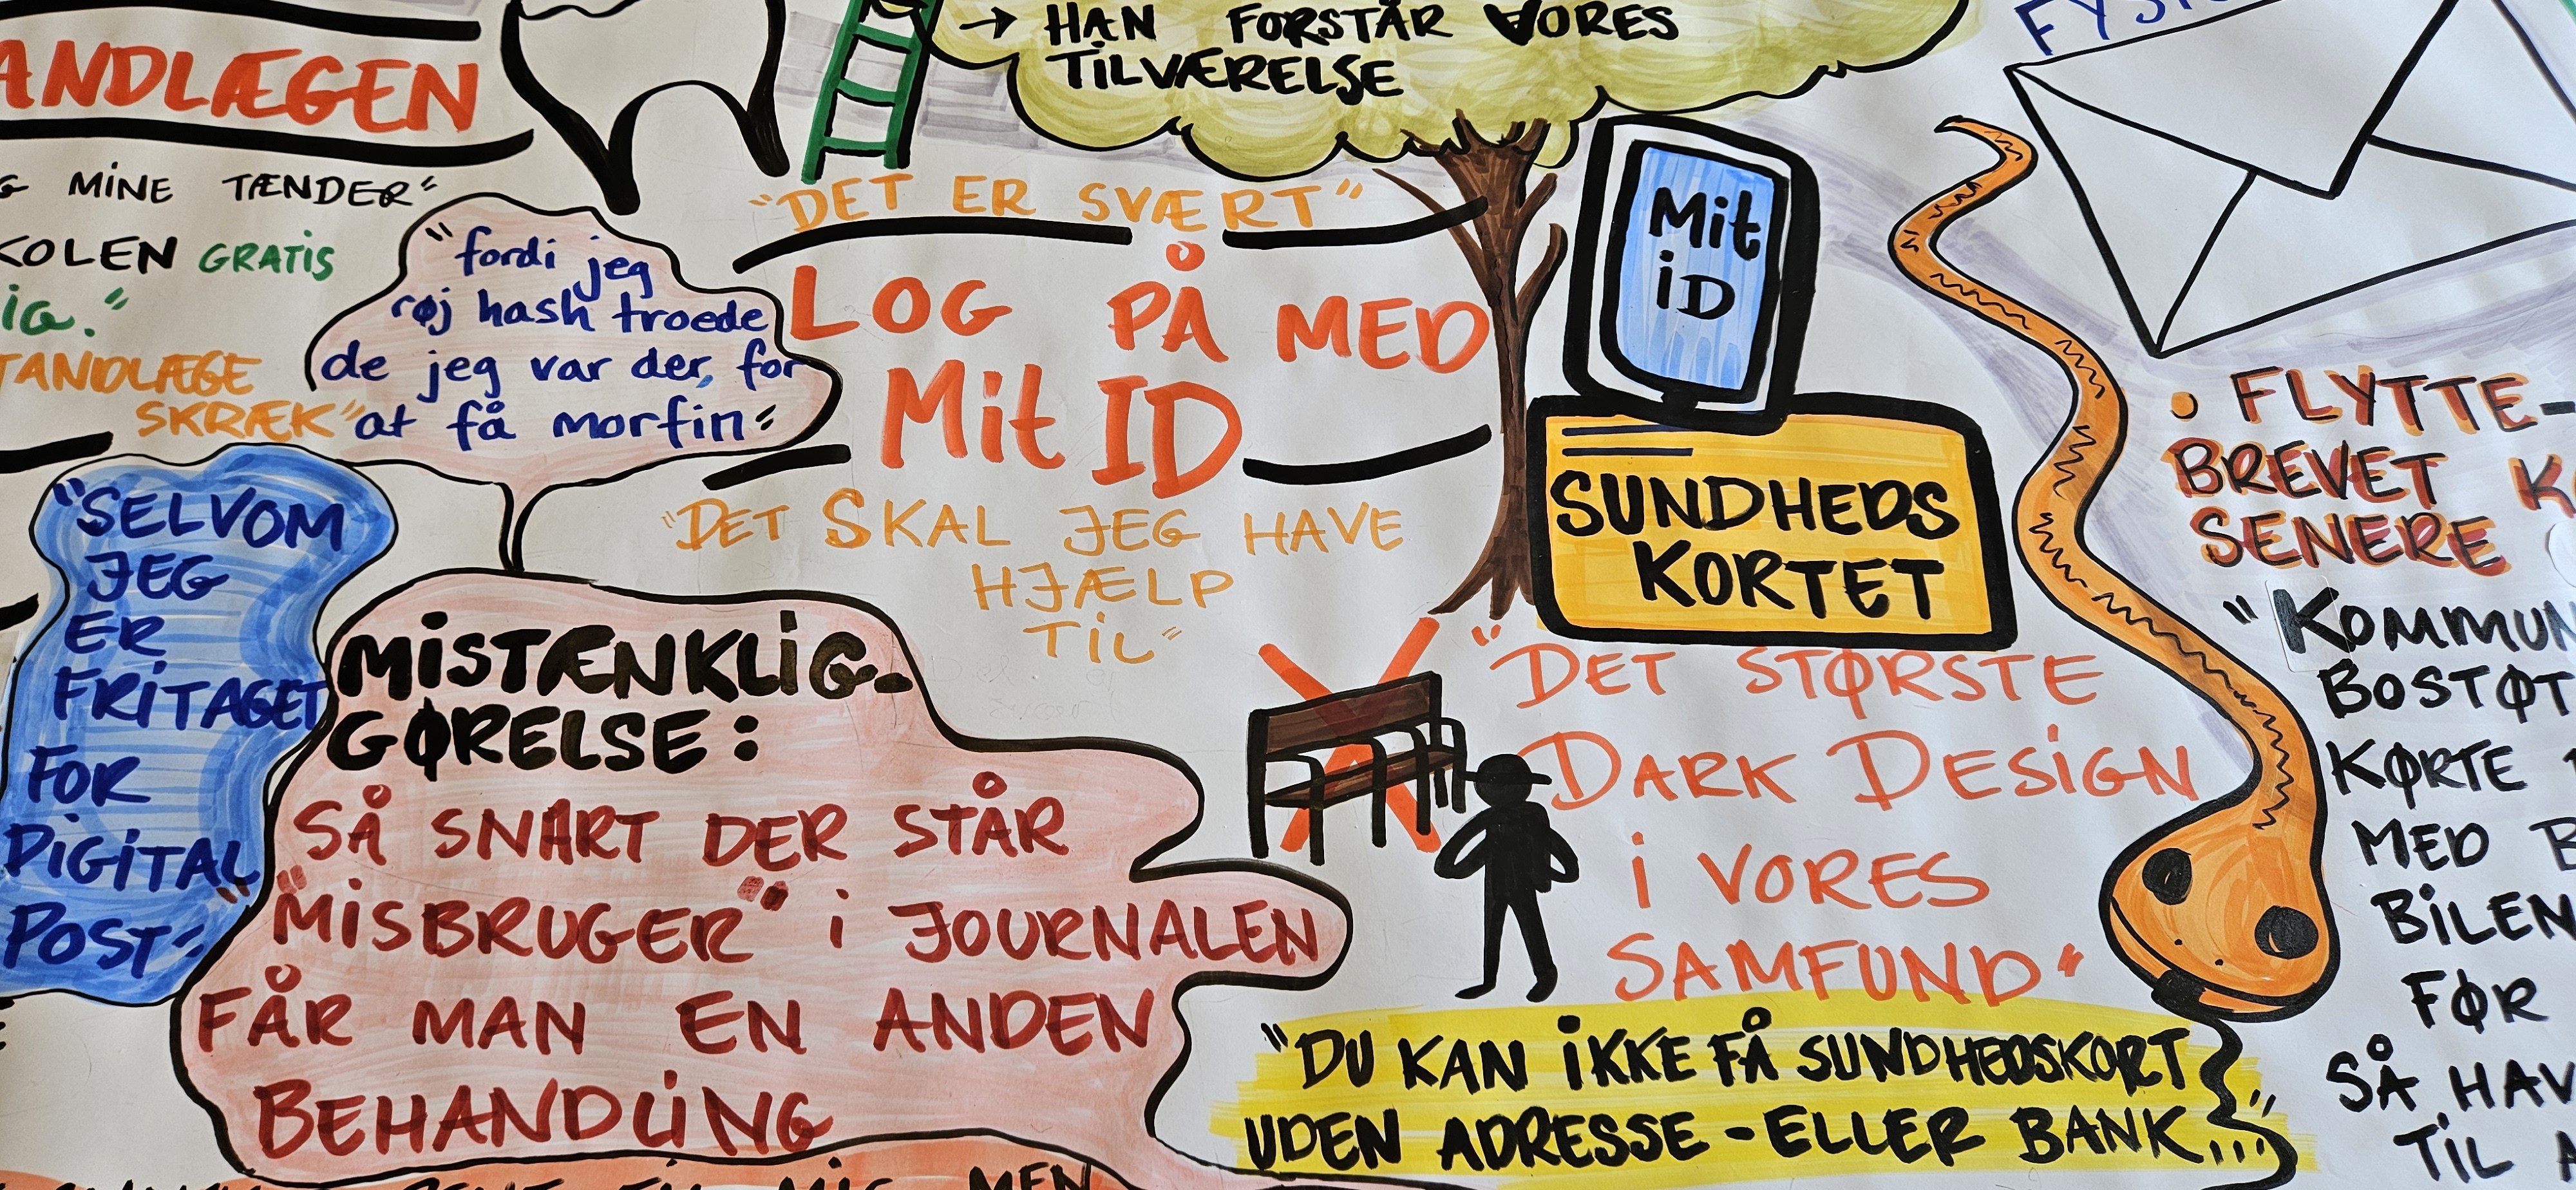 → HAN FORSTÅR VORES
TILVÆRELSE
ANDLÆGEN
MINE TÆNDER"
KOLEN GRATIS
IG."
TANDLÆGE
SKRÆK"
"fordi jeg
røj hash troede
de jeg var der, for
at få morfin"
"SELVOM
JEG
ER
FRITAGET
FOR
DIGITAL
POST"
MISTÆNKLIG-
GØRELSE:
SÅ SNART DER STÅR
"MISBRUGER" i JOURNALEN
FÅR MAN EN ANDEN
BEHANDLING
MEN
"DET ER SVÆRT"
LOG PÅ MED
Mit ID
"DET SKAL JEG HAVE
HJÆLP
TIL"
Mit
iD
SUNDHEDS
KORTET
"DET STØRSTE
DARK DESIGN
i VORES
SAMFUND"
"DU KAN IKKE FÅ SUNDHEDSKORT
UDEN ADRESSE - ELLER BANK..."
• FLYTTE-
BREVET K
SENERE
"KOMMUN
BOSTØT
KØRTE
MED B
BILEN
FØR
SÅ HAV
TIL A